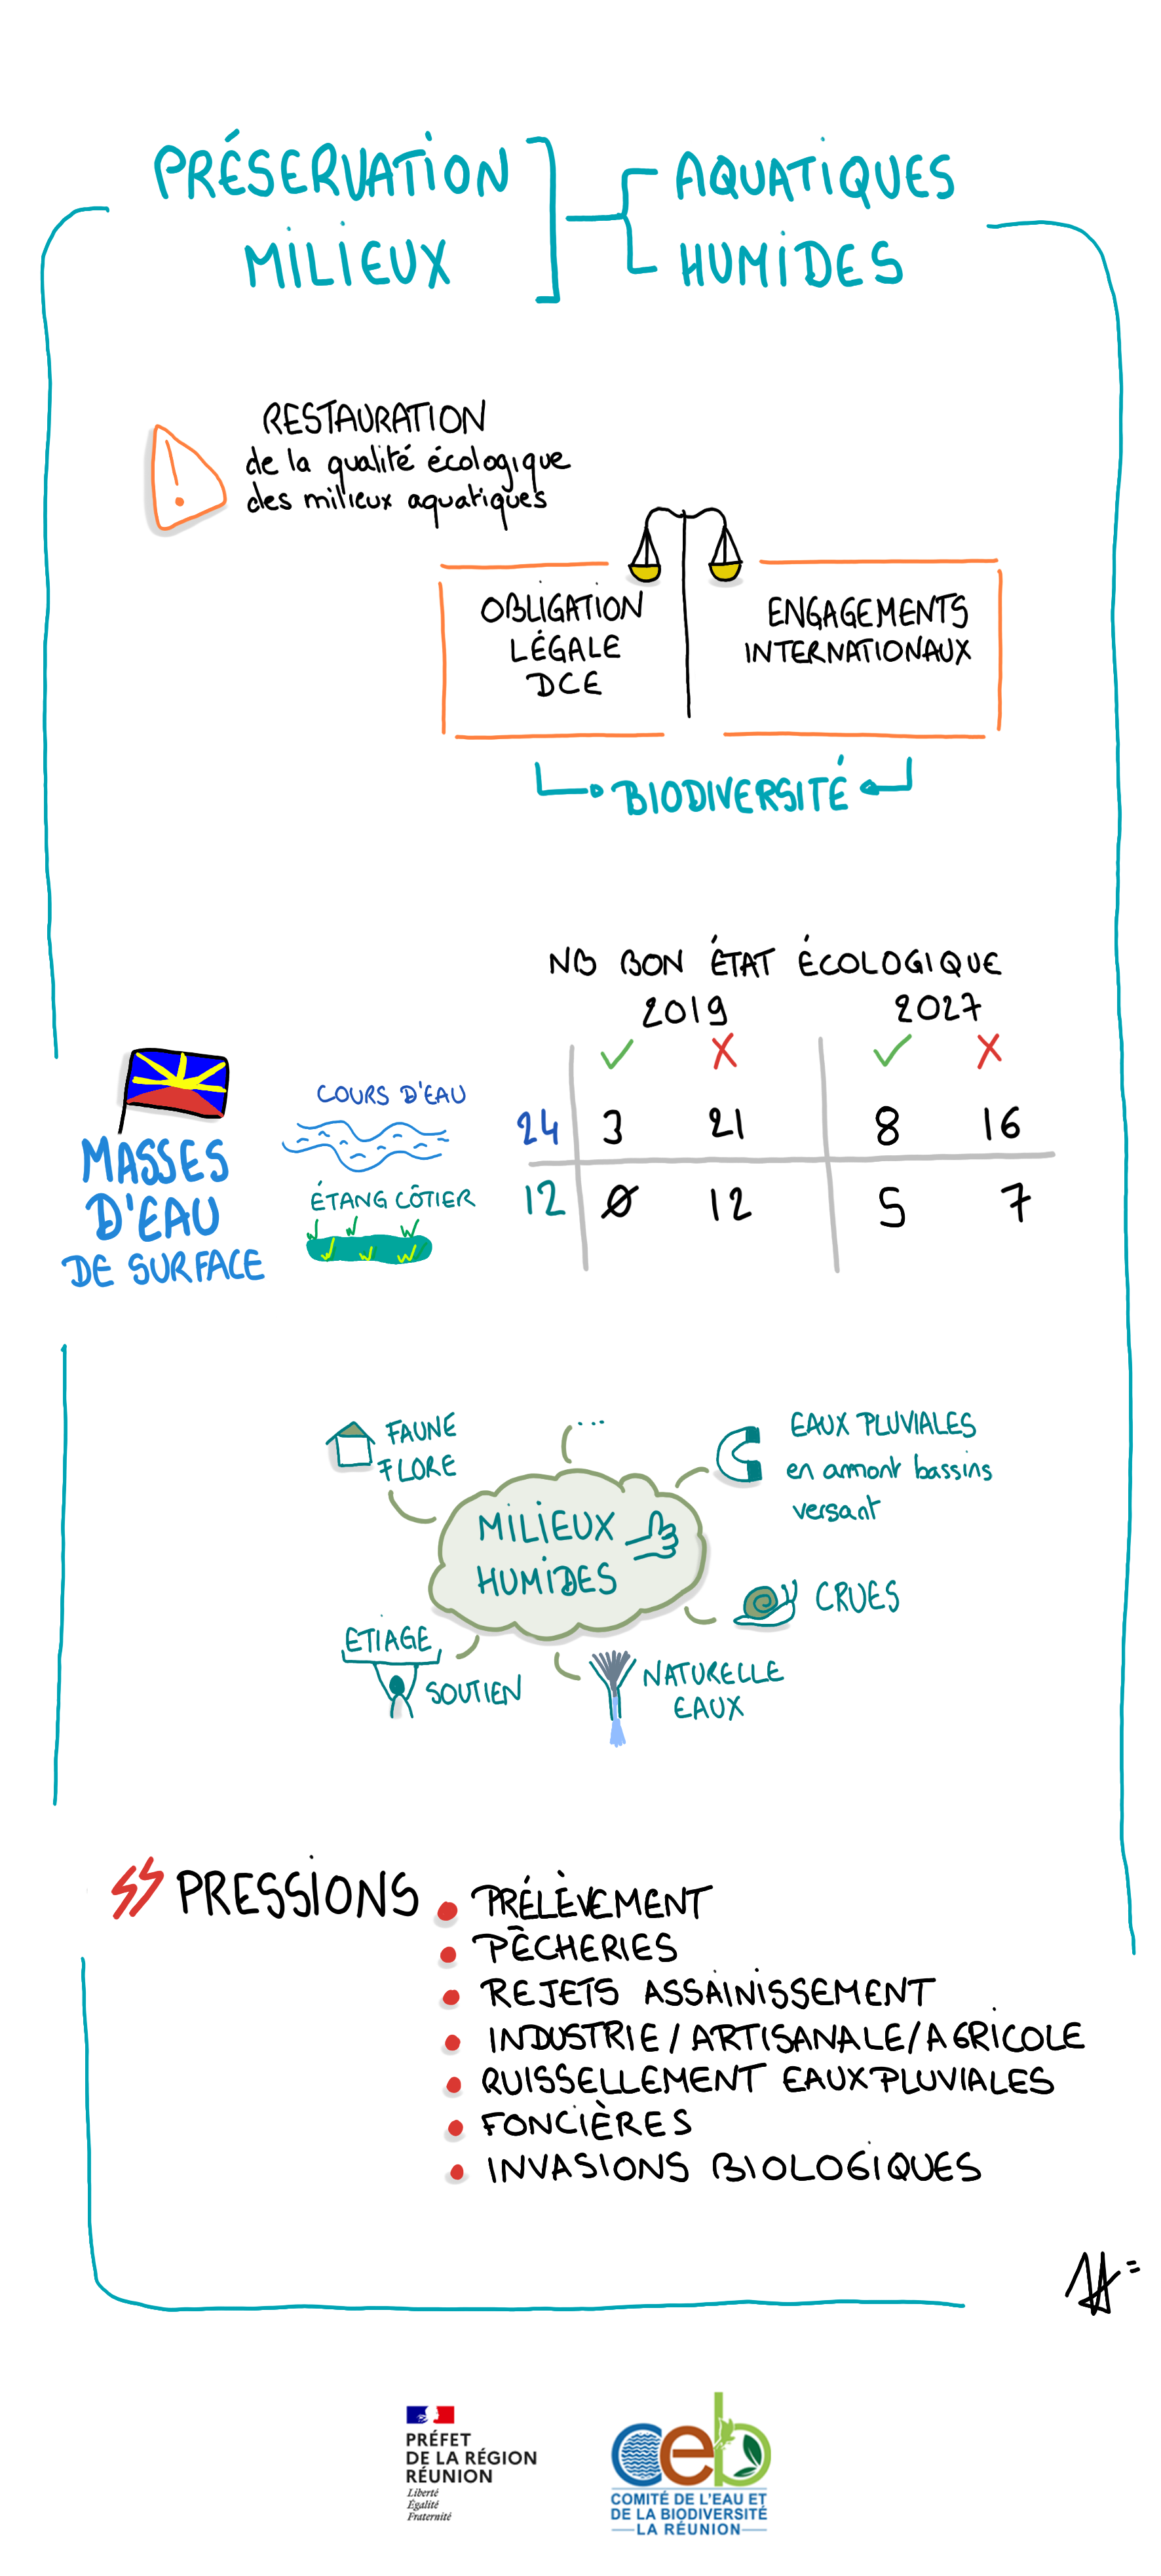 PRÉSERVATION
MILIEUX
AQUATIQUES
HUMIDES
RESTAURATION
de la qualité écologique
des milieux aquatiques
OBLIGATION
LÉGALE
DCE
ENGAGEMENTS
INTERNATIONAUX
BIODIVERSITÉ
NB BON ÉTAT ÉCOLOGIQUE
2019 2027
MASSES
D'EAU
DE SURFACE
COURS D'EAU 24 3 21 8 16
ÉTANG CÔTIER 12 Ø 12 5 7
FAUNE
FLORE
...
EAUX PLUVIALES
en amont bassins
versant
MILIEUX
HUMIDES
CRUES
ETIAGE
SOUTIEN
NATURELLE
EAUX
PRESSIONS
PRÉLÈVEMENT
PÊCHERIES
REJETS ASSAINISSEMENT
INDUSTRIE/ARTISANALE/AGRICOLE
RUISSELLEMENT EAUX PLUVIALES
FONCIÈRES
INVASIONS BIOLOGIQUES
PRÉFET
DE LA RÉGION
RÉUNION
Liberté
Égalité
Fraternité
ceb
COMITÉ DE L'EAU ET
DE LA BIODIVERSITÉ
LA RÉUNION